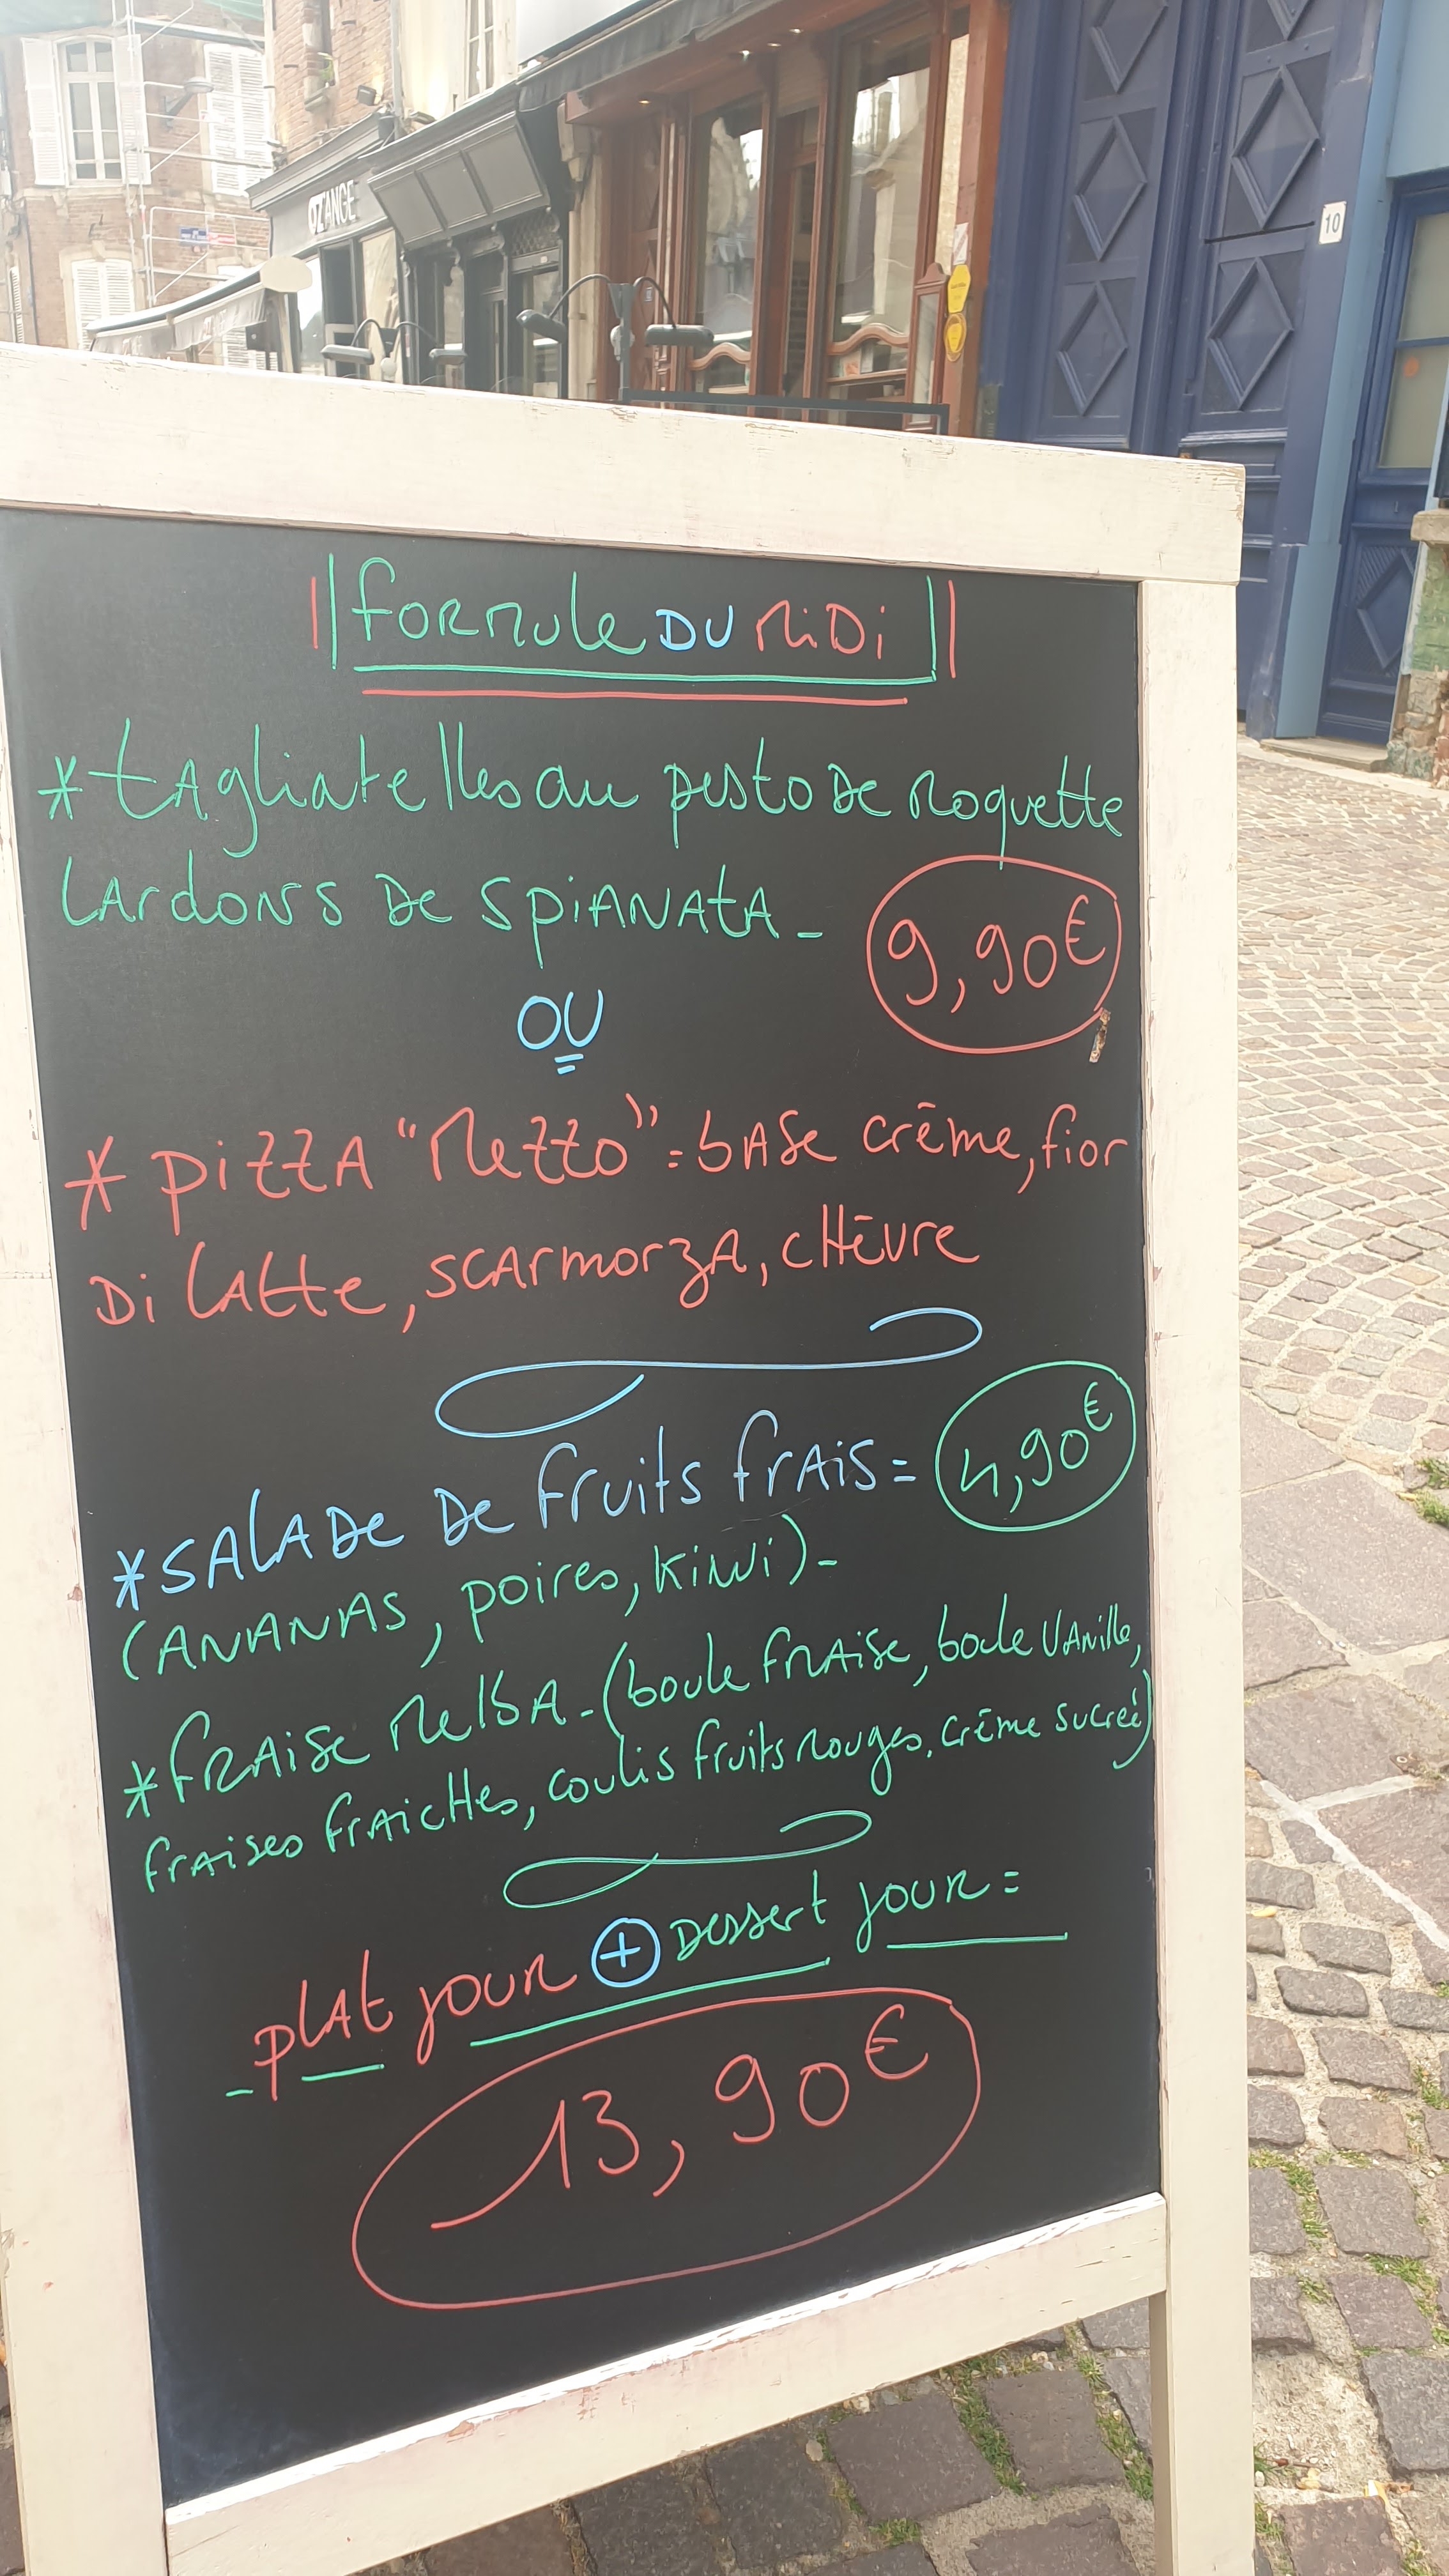 OZ'ANGE
10
formule DU MiDi
* tagliatelles au pesto de roquette
lardons de spianata -
9,90€
OU
* pizza "Mezzo" = base crème, fior
di latte, scarmorza, chèvre
* salade de fruits frais = 4,90€
(ananas, poires, kiwi) -
* fraise Melba - (boule fraise, boule vanille,
fraises fraiches, coulis fruits rouges, crème sucrée)
- plat jour + dessert jour =
13,90€